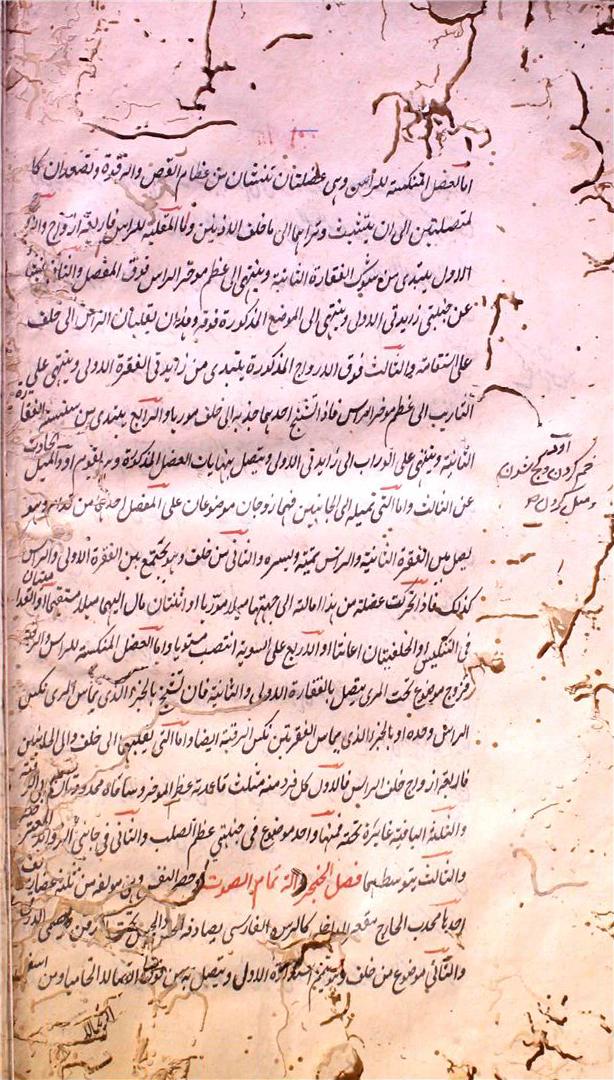 اما العضل المنكسة للراس وهى عضلتان تنشان من عظام القص والترقوة وتصعدان كا
لمتصلتين الى ان يتشبث وتراهما الى ما خلف الاذنين واما المقلبة للراس فاربعة ازواج
الاول يبتدى من شوك الفقارة الثانية وينتهى الى عظم موخر الراس فوق المفصل والثانى
عن جنبتى زايدتى الاولى وينتهى الى الموضع المذكورة فوقه وهذان يقلبان الراس الى خلف
على استقامة والثالث فوق الازواج المذكورة يبتدى من زايدتى الفقرة الاولى وينتهى على
التاريب الى عظم موخر الراس فاذا تشنج احدهما جذبه الى خلف موربا والرابع يبتدى من سنسنة الفقا
الثانية وينتهى على الوراب الى زايدتى الاولى ويتصل بنهايات العضل المذكورة وبه المقوم اود الميل
عن الثالث واما التى تميله الى الجانبين فهما زوجان موضوعان على المفصل احدهما من قدام وهو
يصل بين الفقرة الثانية والراس يمنة ويسره والثانى من خلف وهو يجتمع بين الفقرة الاولى والراس
كذلك فاذا تحركت عضلة من هذا امالته الى جهتها ميلا موربا او اثنتان مال اليهما ميلا مستقيما
فى التنكيس او الخلفيتان اعانتا او الاربع على السوية انتصب مستويا واما العضل المنكسة للراس والرقبة
فزوج موضوع تحت المرى يتصل بالفقارة الاولى والثانية فان تشنج بالجزء الذى يماس المرى نكس
الراس وحده او بالجزء الذى يماس الفقرتين نكس الرقبة ايضا واما التى تقلبهما الى خلف والى الجانبين
فاربعة ازواج خلف الراس فالاول كل فرد منه مثلث قاعدته عظم الموخر وساقاه ممدودتان
والثلثة الباقية غايرة تحته فمنها واحد موضوع فى جنبتى عظم الصلب والثانى فى جانبى الزوايد
والثالث يتوسطهما فصل الحنجرة الة تمام الصوت وحصر النفس وهى مولفه من ثلثة غضاريف
احدها محدب الخارج مقعر الداخل كالترس الفارسى يصادفه
والثانى موضوع من خلف الاول ويتصل به من
اود
خم كردن وكج شدن
وميل كردن